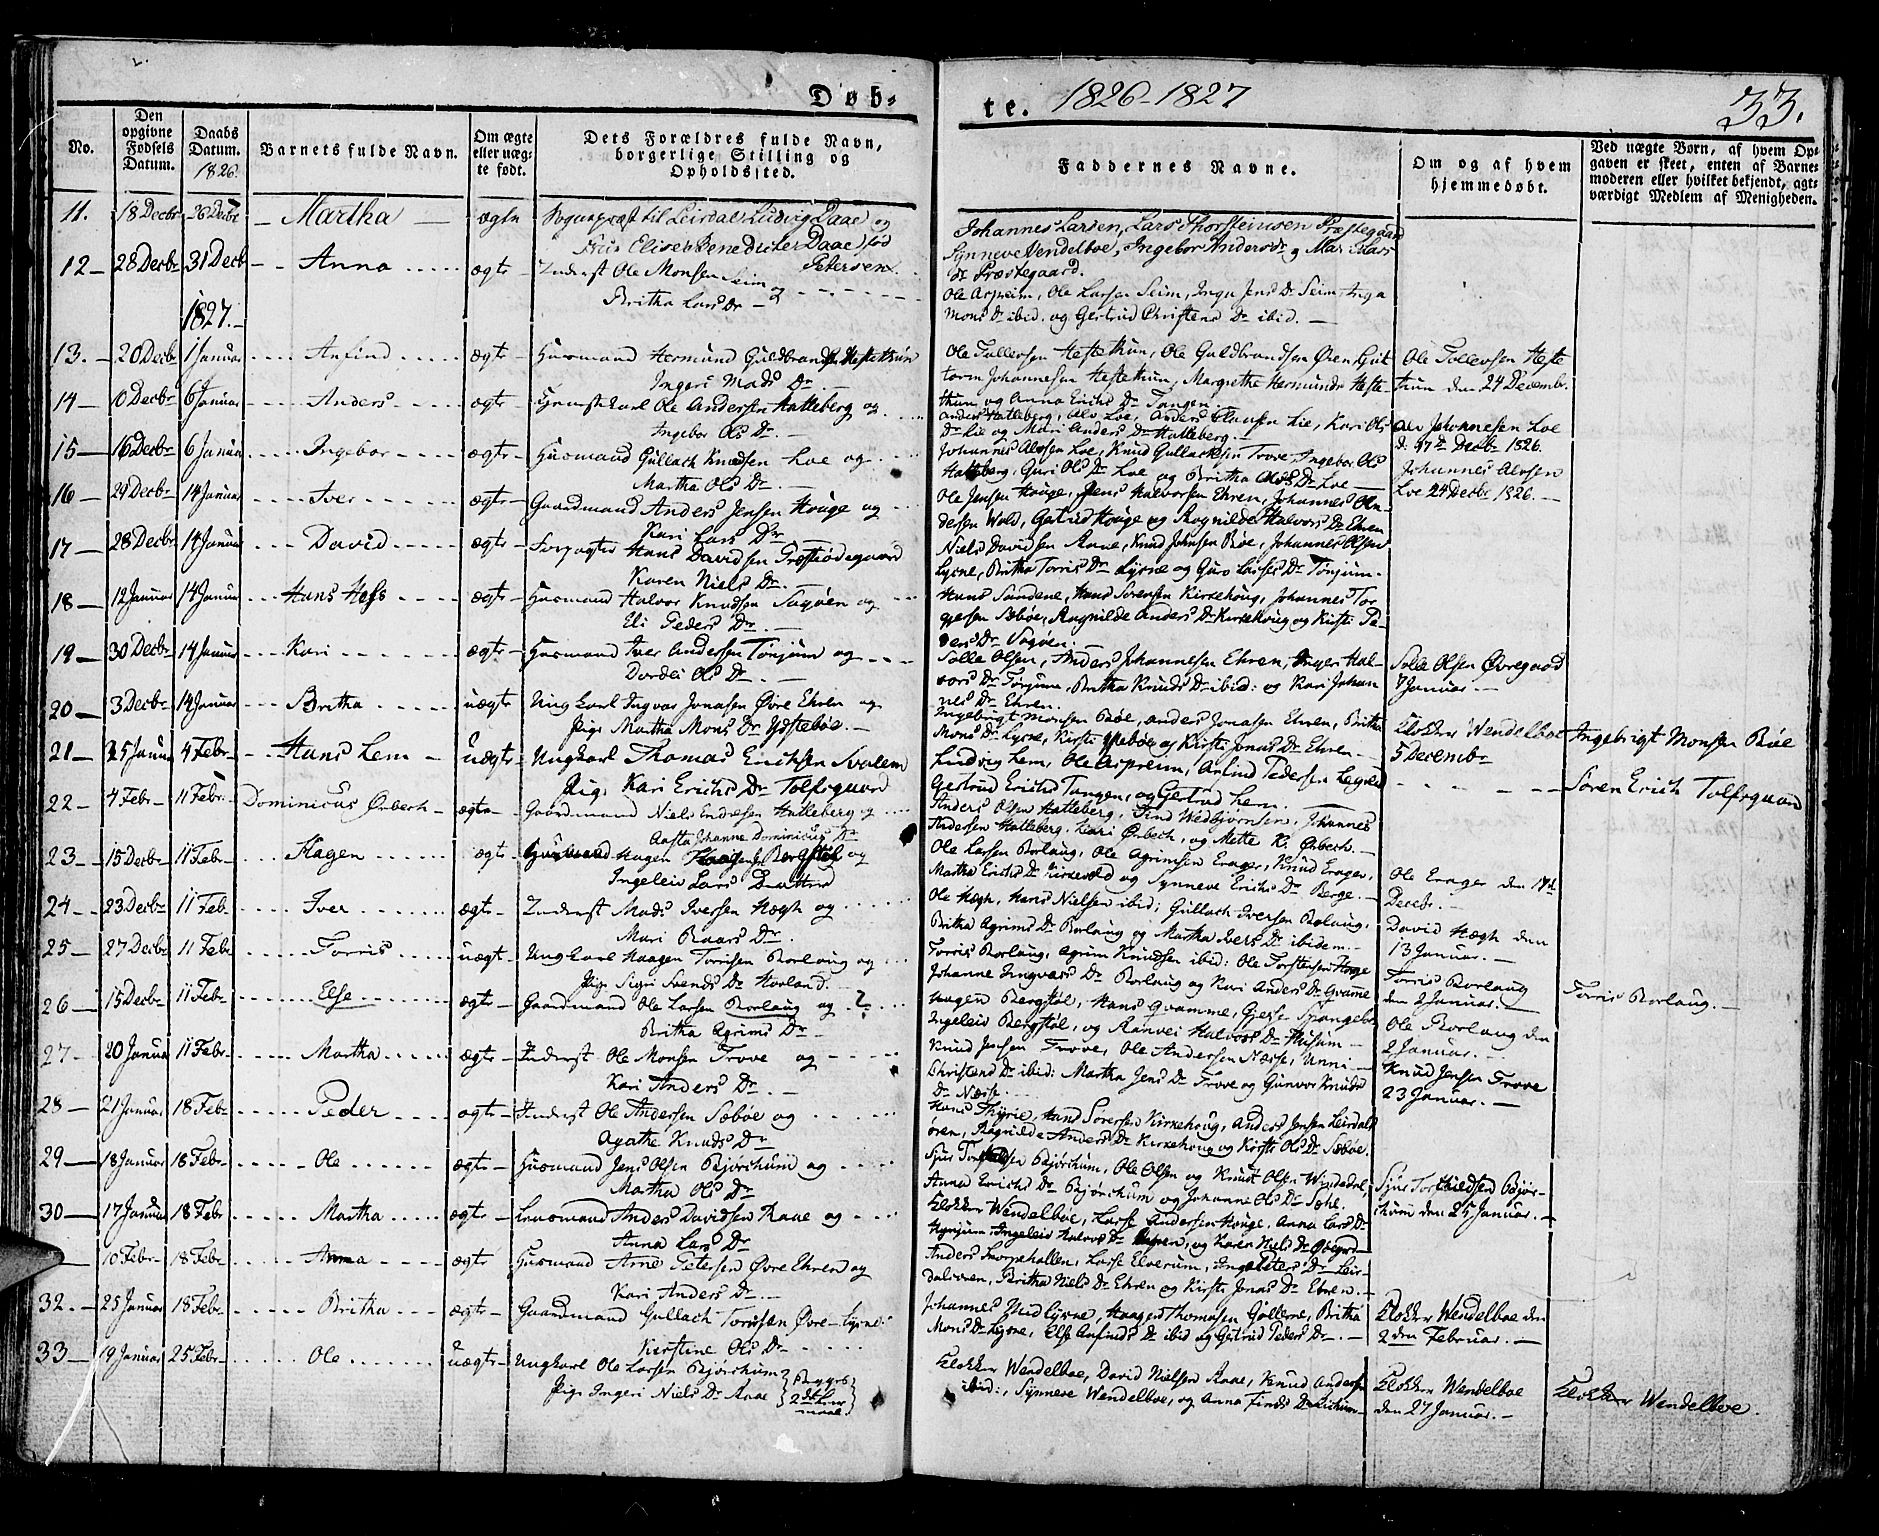 Døb-
te. 1826-1827
33.
No.
Den opgivne Fødsels Datum.
Daabs Datum. 1826.
Barnets fulde Navn.
Om ægte eller uægte født.
Dets Forældres fulde Navn, borgerlige Stilling og Opholdssted.
Faddernes Navne.
Om og af hvem hjemmedøbt.
Ved uægte Børn, af hvem Opgaven er skeet, enten af Barnemoderen eller hvilket bekjendt, agtværdigt Medlem af Menigheden.
11. 18 Decbr 26 Decbr Martha ægte Sognepræst til Leirdal Ludvig Daae og
Frue Benedicte Daae fød
Petersen
Johannes Larsen, Lars Thorsteinsen Præstegaard
Synneve Wendelboe, Ingebor Anders Dr og Mari Lars
Dr Præstegaard.
12 28 Decbr 31 Decb Anna ægte Inderst Ole Monsen Seim og
Britha Lars Dr
Ole Aspeim, Ole Larsen Seim, Inga Jens Dr Seim, Inga
Mons Dr ibid. og Gertrud Christens Dr ibid.
1827.
13. 20 Decbr 1 Januar Anfind ægte Husmand Hermund Guldbrandsen Hestethun
Ingeri Mads Dr.
Ole Tollevsen Hestethun, Ole Guldbrandsen Øren, Gut
torm Johannesen Hestethun, Margrethe Hermunds Heste
thun og Anna Erichs Dr Tangen.
Ole Tollevsen Heste
thun den 24 Decemb.
14 10 Decbr 6 Januar Anders ægte Ole Andersen Hatleberg og
Ingebor Ols Dr.
Anders Hatleberg, Alv Loe, Anders Clausen Lie, Kari Ols
Dr Lie og Mari Anders Dr Hatleberg.
Alv Johannesen Loe
d. 17de Decbr 1826.
15 16 Decbr 6 Januar Ingebor ægte Husmand Gullach Knudsen Loe og
Martha Ols Dr.
Johannes Alvsen Loe, Knud Gullachsen Trove, Ingebor Ols
Hatleberg, Guri Ols Dr Loe og Britha Ols Dr Loe
Johannes Alvsen
Loe 24 Decbr 1826.
16 29 Decbr 14 Januar Iver ægte Gaardmand Anders Jensen Houge og
Kari Lars Dr
Ole Jensen Houge, Jens Halvorsen Ehren, Johannes An-
dersen Wold, Gertrud Houge og Ragnilde Halvors Dr Ehren
17 28 Decbr 14 Januar David ægte Hans Davidsen
Karen Niels Dr.
Niels Davidsen Aaae, Knud Johnsen Bøe, Johannes Olsen
Lysne, Britha Torris Dr Lysne og Guro Larses Dr Tønjum.
18 12 Januar 14 Januar Hans Hess ægte Husmand Halvor Knudsen Sagøen og
Eli Peders Dr.
Hans Sundene, Hans Sørensen Kirkehoug, Johannes Tor
gersen Sæbøe, Ragnilde Anders Dr Kirkehoug og Kirsti Pe-
ders Dr Sagøen.
19 30 Decbr 14 Januar Kari ægte Husmand Iver Andersen Tønjum og
Dordei Ols Dr.
Salle Olsen, Anders Johannesen Ehren, Inger Hal-
vors Dr Tønjum, Britha Knuds Dr ibid: og Kari Johan
nes Dr Ehren.
Salle Olsen Øvregaard
7 Januar.
20 3 Decbr 14 Januar Britha uægte Ungkarl Ingvar Jonasen Øvre Ehren og
Pige Martha Mons Dr Ydstebøe.
Ingebrigt Monsen Bøe, Anders Jonasen Ehren, Britha
Mons Dr Lysne, Kirsti Ystebøe og Kirsti Jonas Dr Ehren
Klokker Wendelboe
5 Decembr
Ingebrigt Monsen Bøe
21 15 Januar 4 Febr Hans Lem uægte Ungkarl Thomas Erichsen Svalem
Pige Kari Erichs Dr Tolfsgaard
Ludvig Lem, Ole Aspreim, Anfind Pedersen Legreid
Gertrud Erichs Tangen, og Gertrud Lem.
Søren Erich Tolfsgaard
22 4 Febr 11 Febr. Dominicus Ørbech ægte Gaardmand Niels Endresen Hatleberg og
Aasta Johanne Dominicus Dr
Anders Olsen Hatleberg, Find Wedbjørnsen, Johannes
Andersen Hatleberg, Kari Ørbech, og Mette K. Ørbech.
23 15 Decbr 11 Febr Hagen ægte Husmand Hagen Bergstøl og
Ingeleiv Lars Datter
Ole Larsen Borlaug, Ole Agrimsen Erager, Knud Erager,
Martha Erichs Dr Kirkevold og Synneve Erichs Dr Berge.
Ole Erager den 17de
Decbr.
24 23 Decbr 11 Feb Iver ægte Inderst Mads Iversen Hægh og
Mari Baars Dr.
Ole Hægh, Hans Nielsen ibid; Gullach Iversen Borlaug,
Britha Agrims Dr Borlaug og Martha Ivers Dr ibidem.
David Hægh den
13 Januar.
25 27 Decbr 11 Febr Torris uægt Ungkarl Haagen Torrisen Borlaug og
Pige Sigri Svends Dr Horland.
Torris Borlaug, Agrim Knudsen ibid: Ole Torstensen Houge
Johanne Ingvars Dr Borlaug og Kari Anders Dr Qvamme
Torris Borlaug
den 2 Januar.
Torris Borlaug.
26 15 Decbr 11 Febr Else ægte Gaardmand Ole Larsen Borlaug og ?
Britha Agrims Dr
Haagen Bergstøl, Hans Qvamme, Gjesse Spangelo
Ingeleiv Bergstøl, og Ranvei Halvors Dr Husum
Ole Borlaug den
2 Januar.
27 20 Januar 11 Febr Martha ægte Inderst Ole Monsen Trove og
Kari Anders Dr.
Knud Jensen Trove, Ole Andersen Næsse, Unni
Christens Dr ibid: Martha Jens Dr Trove og Gunvor Knuds
Dr Næsse.
Knud Jensen Trove
23 Januar.
28 21 Januar 18 Febr Peder ægte Inderst Ole Andersen Sæbøe og
Agathe Knuds Dr
Hans Thyrie, Hans Sørensen Kirkehoug, Anders Jensen Leirdals
øren, Ragnilde Anders Dr Kirkehoug og Kirsti Ols Dr Sæbøe.
29 18 Januar 18 Febr Ole ægte Husmand Jens Olsen Bjørkum og
Martha Ols Dr
Sjur Torkildsen Bjørchum, Ole Olsen og Knud Olsen Windedal,
Anna Erichs Dr Bjørchum og Johanne Ols Dr
Sjur Torkildsen Bjør-
chum den 25 Januar.
30 17 Januar 18 Febr Martha ægte Anders Davidsen Raae og
Anna Lars Dr
Klokker Wendelboe, Larse Andersen Houge, Anna Lars Dr
Hynjum, Ingeleiv Halvors Dr Ehren, og Karen Niels Dr
10 Febr 18 Febr Anna ægte Husmand Arne Petersen Øvre Ehren og
Kari Anders Dr.
Anders Snorrehallen, Larse Elverum, Peters Dr Leir-
dalsøren, Britha Niels Dr Ehren og Kirsti Jonas Dr Ehren.
32. 25 Januar 18 Febr Britha ægte Gaardmand Gullach Torrisen Øvre Lysne
Kirstine Ols Dr
Johannes Lysne, Haagen Thomasen Gollerne, Britha
Mons Dr Lysne, Else Anfinds Dr ibid og Gertrud Peders Dr
Klokker Wendelboe den
2 den Februar.
33 19 Januar 25 Febr Ole uægte Ungkarl Ole Larsen Bjørchum
Pige Ingeri Niels Dr Aaae Begges 2det Leiermaal
Klokker Wendelboe, David Nielsen Aaae, Knud Andersen
ibid:, Synneve Wendelboe, og Anna Finds Dr
Klokker Wendelboe
den 27 Januar.
Klokker Wendelboe.